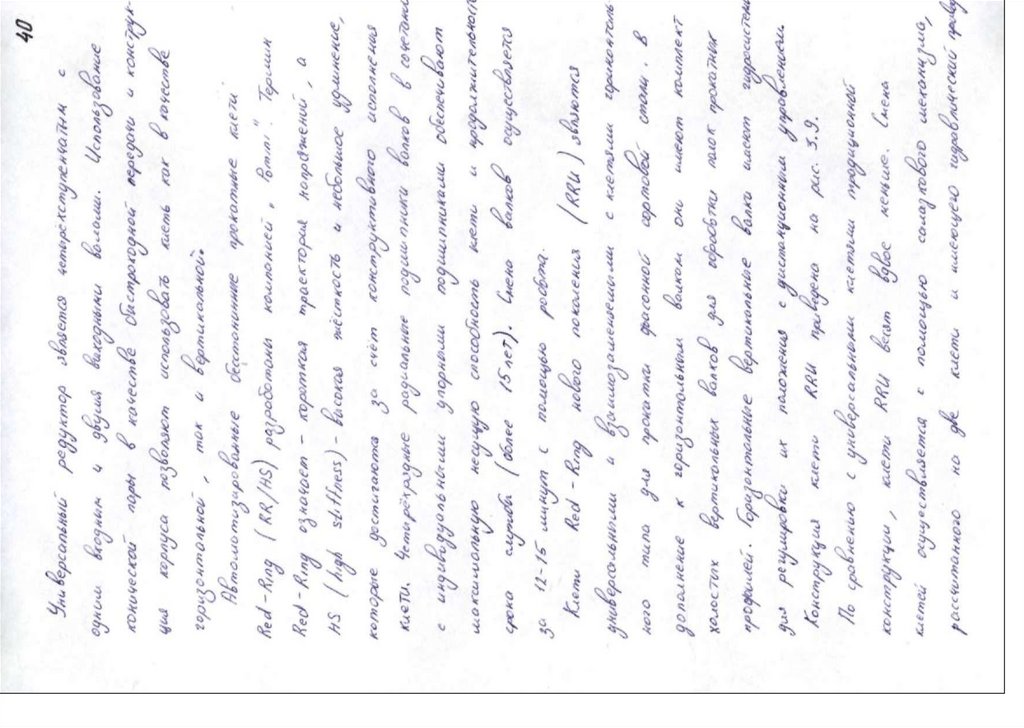 40
Универсальный редуктор является четырёхступенчатым с
одним входным и двумя выходными валами. Использование
конической пары в качестве быстроходной передачи и конструк-
ция корпуса позволяют использовать клеть как в качестве
горизонтальной, так и вертикальной.
Автоматизированные бесстанинные прокатные клети
Red-Ring (RR/HS) разработаны компанией „Pomini". Термин
Red-Ring означает - короткая траектория напряжений, а
HS (high stiffness) - высокая жёсткость и небольшое удлинение,
которые достигаются за счёт конструктивного исполнения
клети. Четырёхрядные радиальные подшипники валков в сочетании
с индивидуальными упорными подшипниками обеспечивают
максимальную несущую способность клети и продолжительность
срока службы (более 15 лет). Смена валков осуществляется
за 12-15 минут с помощью робота.
Клети Red-Ring нового поколения (RRU) являются
универсальными и взаимозаменяемыми с клетями горизонталь
ного типа для прокатки фасонной сортовой стали. В
дополнение к горизонтальным валкам они имеют комплект
холостых вертикальных валков для обработки полок прокатных
профилей. Горизонтальные вертикальные валки имеют гидросистему
для регулировки их положения с дистанционным управлением.
Конструкция клети RRU приведена на рис. 3.9.
По сравнению с универсальными клетями традиционной
конструкции, клети RRU весят вдвое меньше. Смена
клетей осуществляется с помощью салазкового механизма,
рассчитанного на две клети и имеющего гидравлический